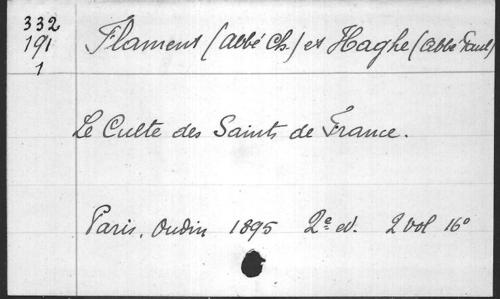 332
191
1
Flament (Abbé Ch.) et Haghe (Abbé Paul)
Le Culte des Saints de France.
Paris, Oudin 1895 2e ed. 2 vol 16°